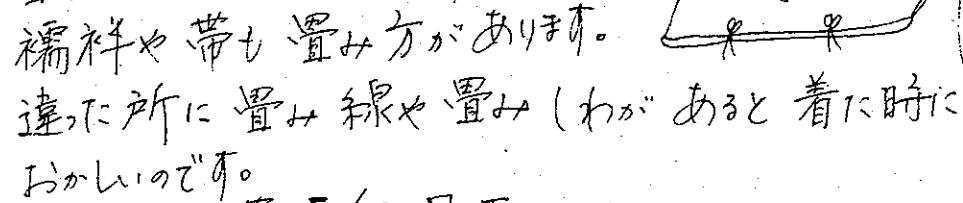 襦袢や帯も畳み方があります。
違った所に畳み線や畳みしわがあると着た時に
おかしいのです。